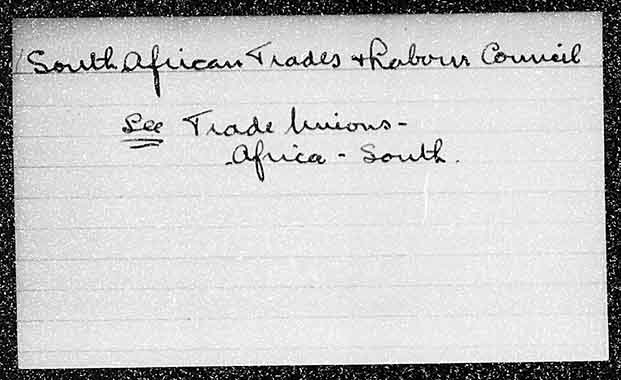 South African Trades & Labour Council
See Trade Unions -
Africa - South.